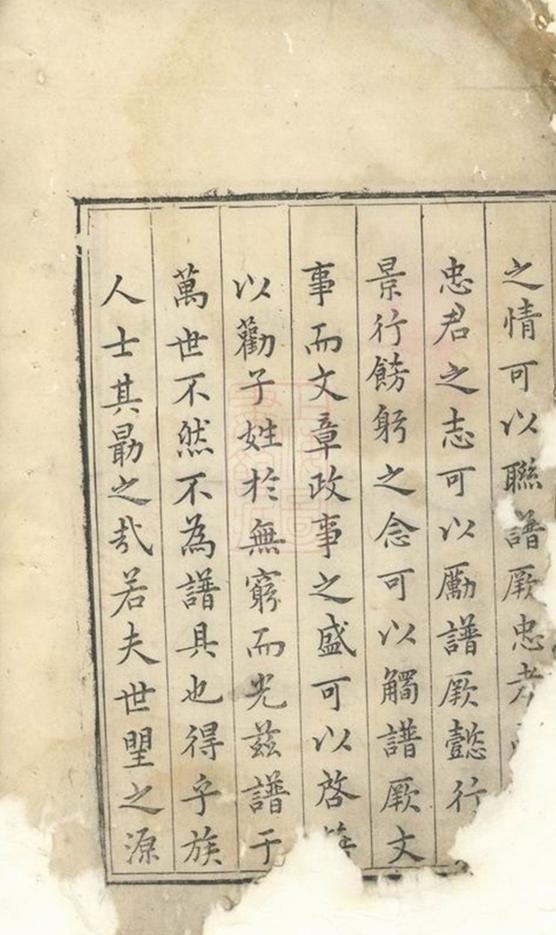 之情可以聯譜厥忠者
忠君之志可以勵譜厥懿行
景行餝躬之念可以觸譜厥文
事而文章政事之盛可以啓
以勸子姓於無窮而光茲譜于
萬世不然不為譜具也得乎族
人士其勗之哉若夫世朢之源